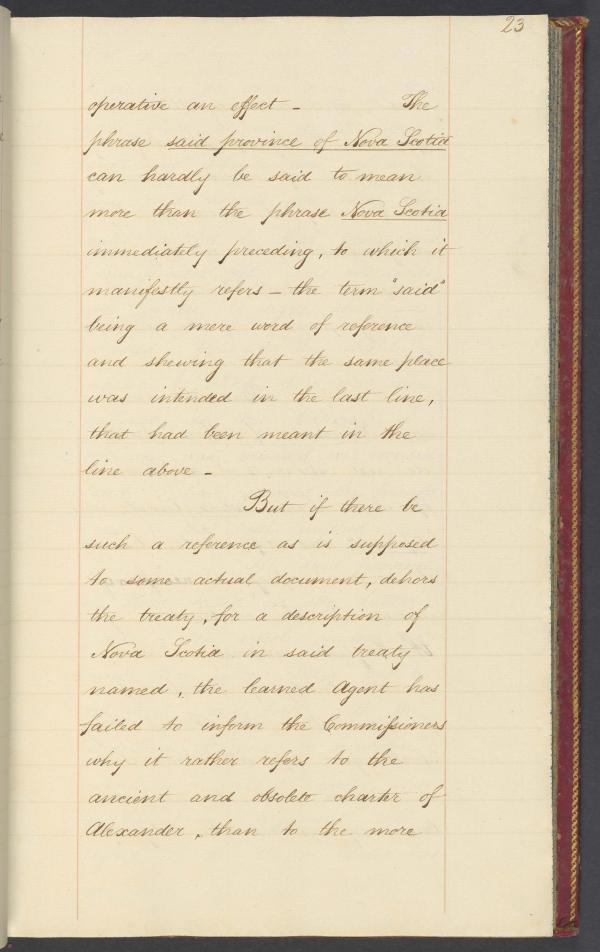 23
operative an effect - The
phrase said province of Nova Scotia
can hardly be said to mean
more than the phrase Nova Scotia
immediately preceding, to which it
manifestly refers - the term "said"
being a mere word of reference
and shewing that the same place
was intended in the last line,
that had been meant in the
line above -
But if there be
such a reference as is supposed
to some actual document, dehors
the treaty, for a description of
Nova Scotia in said treaty
named, the learned Agent has
failed to inform the Commissioners
why it rather refers to the
ancient and obsolete charter of
Alexander, than to the more